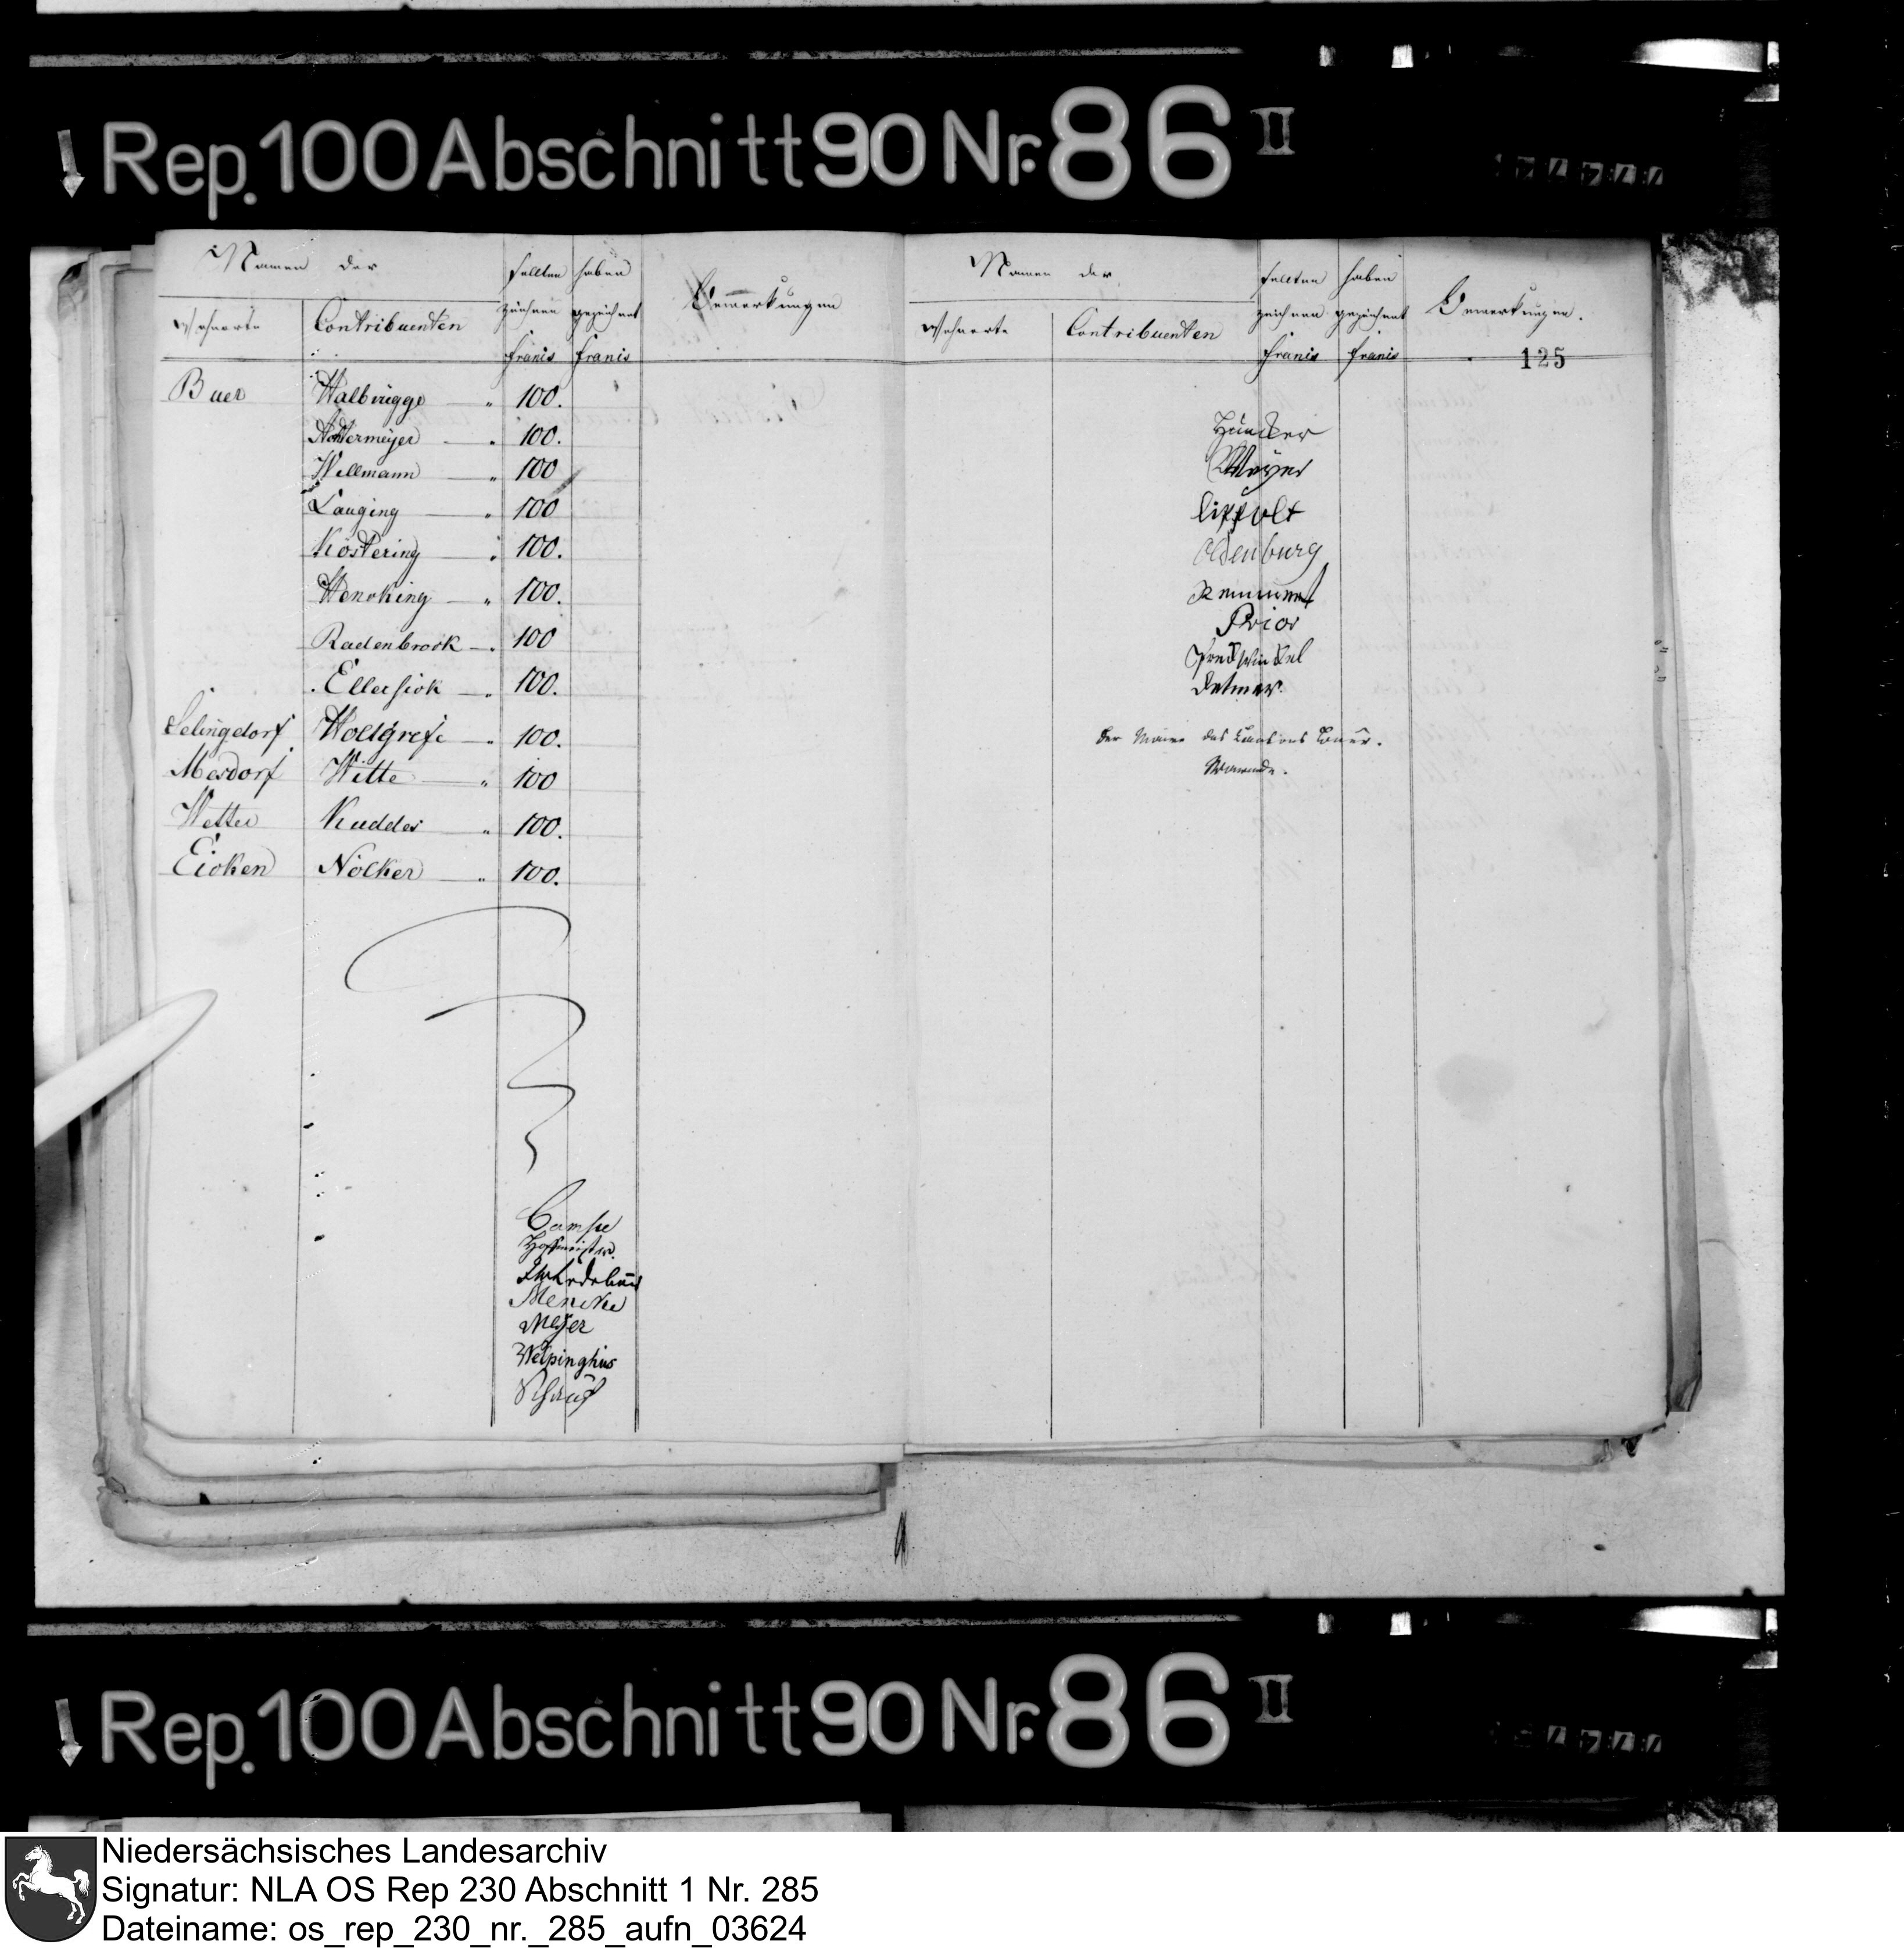 Rep. 100 Abschnitt 90 Nr. 86 II
Namen der
Wohnorte
Contribuenten
sollten zeichnen francs
haben gezeichnet francs
Bemerkungen
Buer Walbrügge " 100.
Aldermeyer " 100.
Wellmann " 100
Lauging " 100
Köstering " 100.
Wencking " 100.
Radenbrock 100
Ellersiek 100.
Selingdorf Woltgrefe " 100.
Mesdorf Witte " 100
Wetter Kuddes " 100.
Eicken Nölker " 100.
Campe
Hoffmeister
Mencke
Meyer
Welpinghus
Namen der
Wohnorte
Contribuenten
sollten zeichnen francs
haben gezeichnet francs
Bemerkungen.
125
Hüncker
Meyer
Lippolt
Oldenburg
Remmert
Prior
Detmer.
Der Maire des Cantons Buer.
Rep. 100 Abschnitt 90 Nr. 86 II
Niedersächsisches Landesarchiv
Signatur: NLA OS Rep 230 Abschnitt 1 Nr. 285
Dateiname: os_rep_230_nr._285_aufn_03624